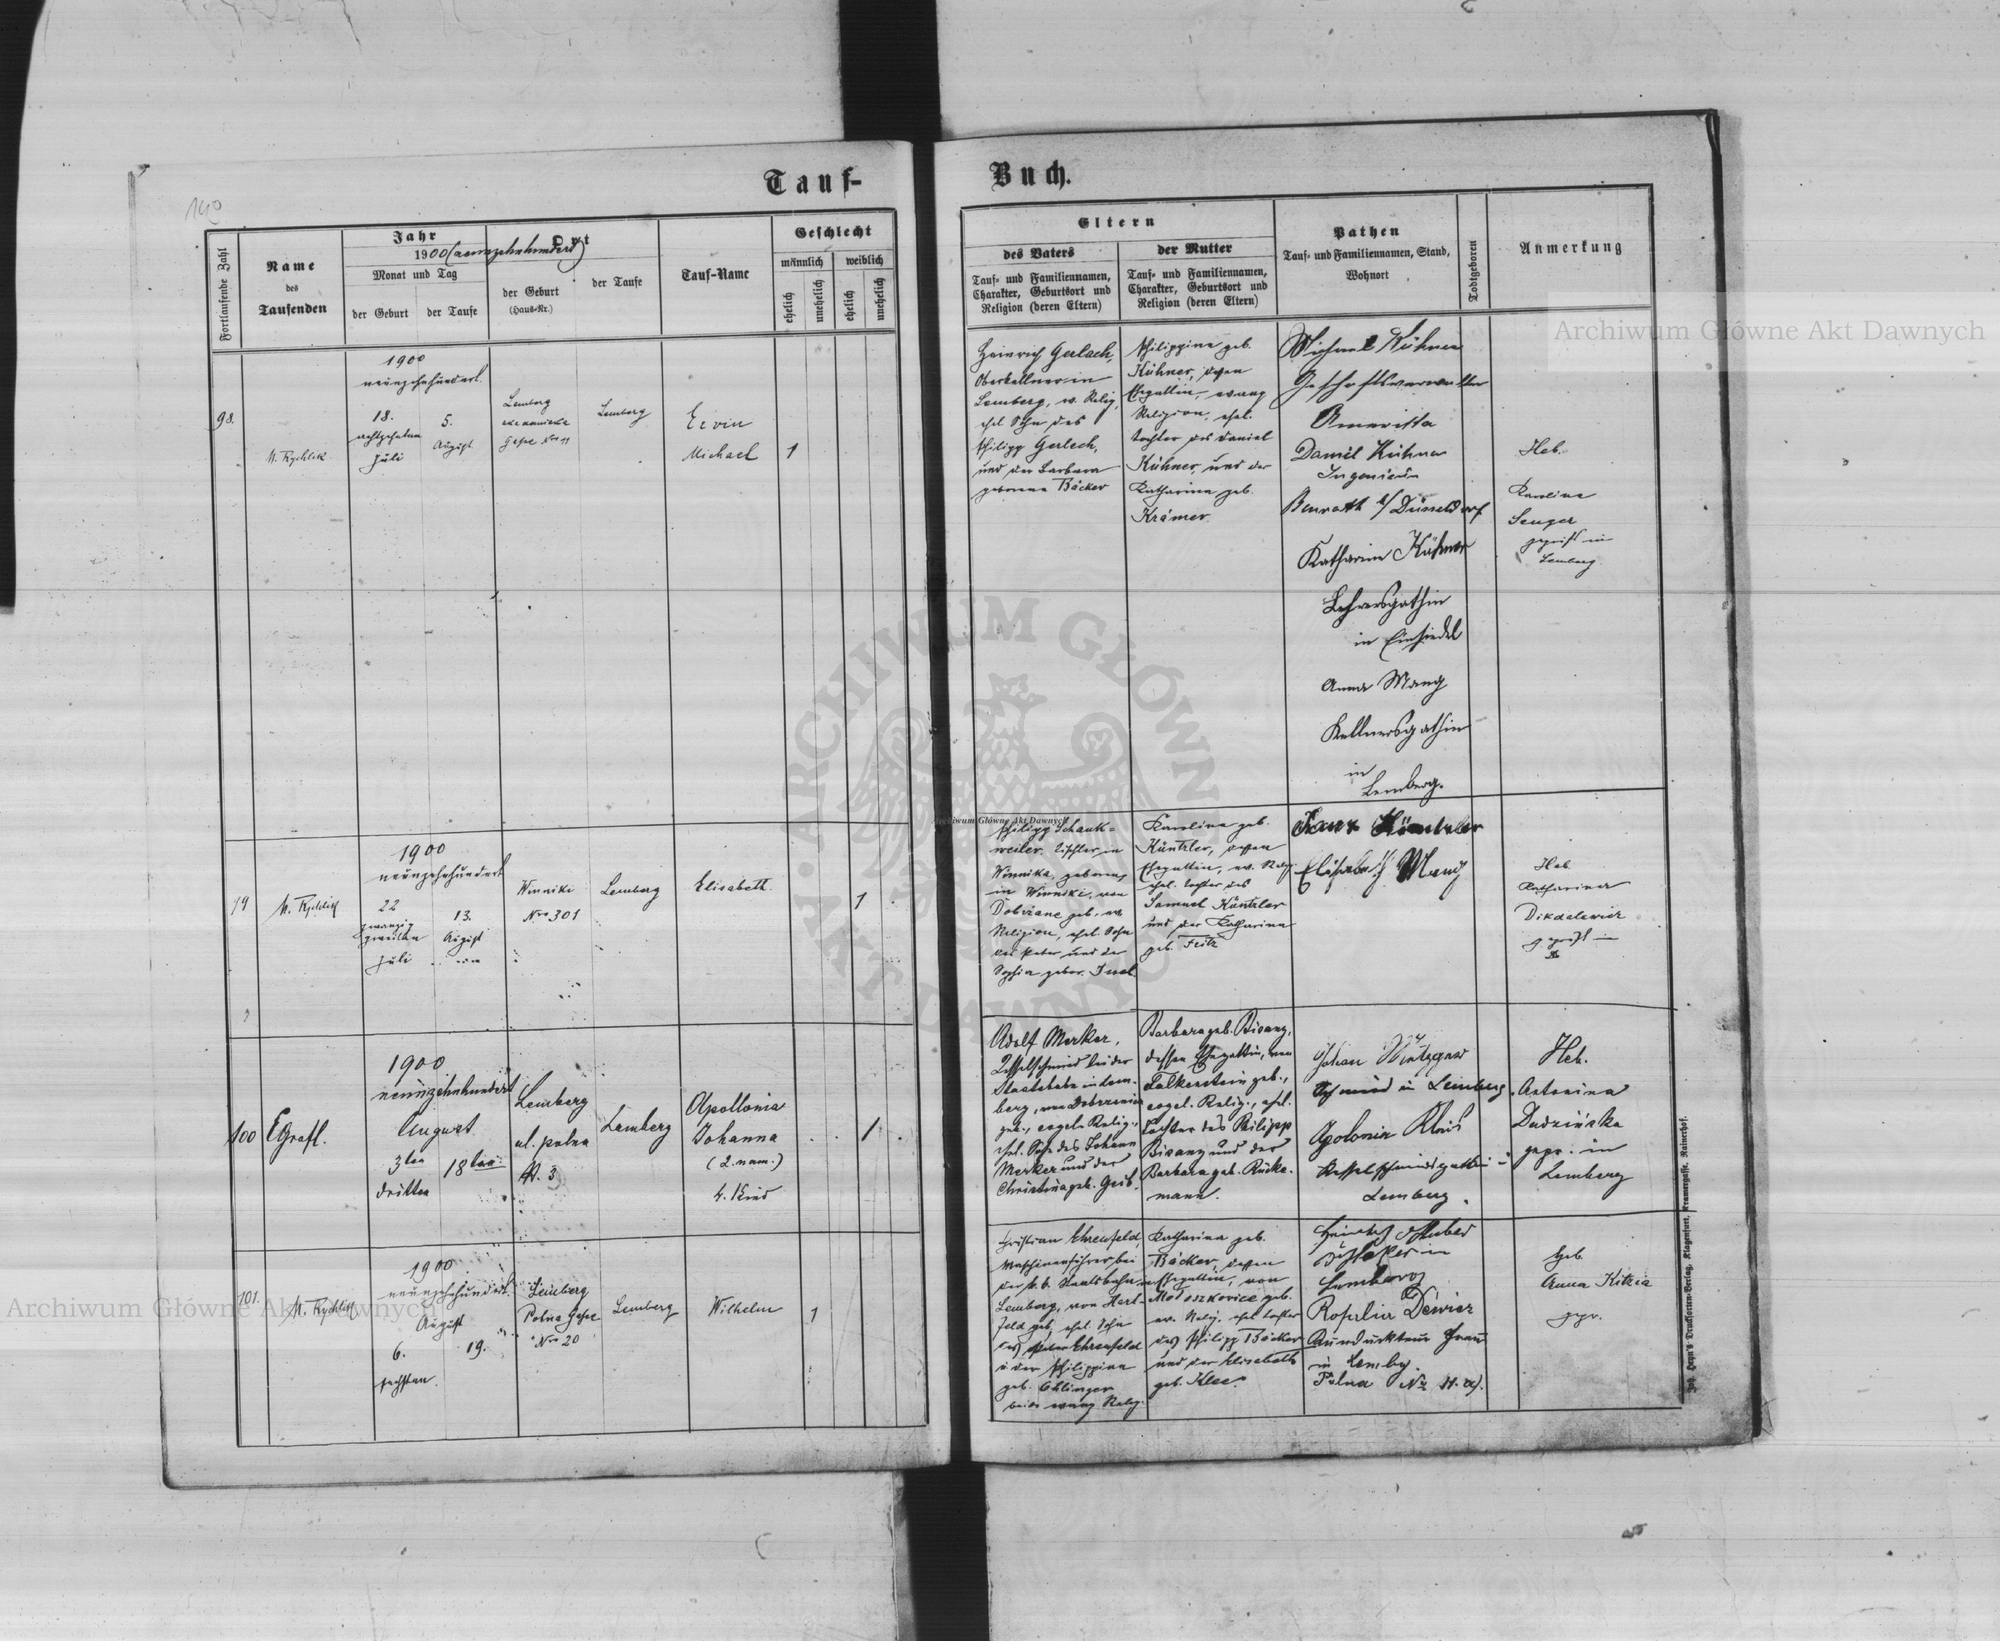 Tauf-
Buch.
140
Fortlaufende Zahl
Name
des
Taufenden
Jahr
1900 (neunzehnhundert)
Monat und Tag
der Geburt
der Taufe
Ort
der Geburt
(Haus-Nr.)
der Taufe
Tauf-Name
Geschlecht
männlich
weiblich
ehelich
unehelich
ehelich
unehelich
Eltern
des Vaters
Tauf- und Familiennamen,
Charakter, Geburtsort und
Religion (deren Eltern)
der Mutter
Tauf- und Familiennamen,
Charakter, Geburtsort und
Religion (deren Eltern)
Pathen
Tauf- und Familiennamen, Stand,
Wohnort
Todtgeboren
Anmerkung
98.
M. Rychlik
1900
neunzehnhundert
18.
achtzehnten
Juli
5.
August
Lemberg
Gasse Nro 11
Lemberg
Ervin
Michael
1
Heinrich Gerlach,
Oberkellner in
Lemberg, ev. Relig.,
ehel. Sohn des
Philipp Gerlach,
und der Barbara
geborene Bäcker
Philippine geb.
Kühner, dessen
Ehegattin, evang
Religion, ehel.
Tochter des Daniel
Kühner, und der
Katharina geb.
Krämer.
Michael Kühner
Geschäftsverwalter
Daniel Kühner
Ingenieur
Benrath b/ Düsseldorf
Katharina Kühner
Lehrersgattin
in Einsiedel
Anna Mang
Kellnersgattin
in
Lemberg.
Heb.
Karolina
Senger
geprüft in
Lemberg
M. Rychlik
1900
neunzehnhundert
22
zwanzig
zweiten
Juli
13.
August
Winniki
Nro 301
Lemberg
Elisabeth
1
Philipp Schank=
weiler, Tischler in
Winniki, geboren
in Winniki, von
Dobrzane geb., ev.
Religion, ehel. Sohn
des Peter und der
Sophia gebor. Juel.
Karolina geb.
Küntzler, dessen
Ehegattin, ev. Relig.
ehel. Tochter des
Samuel Küntzler
und der Katharina
geb. Feik
Elisabeth Mang
Heb
Katharina
geprüft in
100
EGrafl.
1900
neunzehnhundert
August
3ten
dritten
18ten
Lemberg
ul. polna
N. 3
Lemberg
Apollonia
Johanna
(2. nam.)
4. Kind
1
Adolf Merker,
Kesselschmied bei der
Staatsbahn in Lem-
berg, von Dobrzanica
geb., evgel. Relig.,
ehel. Sohn des Johann
Merker und der
Christina geb. Geib.
Barbara geb. Bisanz,
dessen Ehegattin, von
Falkenstein geb.,
evgel. Relig., ehel.
Tochter des Philipp
Bisanz und der
Barbara geb. Rücke-
mann.
Schmied in Lemberg.
Apolonia Klais
Kesselschmiedsgattin in
Lemberg.
Heb.
Antonina
Dudzińska
gepr. in
Lemberg
101.
M. Rychlik
1900
neunzehnhundert
August
6.
sechsten
19.
Lemberg
Polna Gasse
Nro 20
Lemberg
Wilhelm
1
Christian Ehrenfeld
Maschinenführer bei
der k. k. Staatsbahn
Lemberg, von Hart-
feld geb, ehel. Sohn
des Peter Ehrenfeld
u der Philippina
geb. Ohlinger
beide evang Relig.
Katharina geb.
Bäcker, dessen
Ehegattin, von
Moloszkovice geb.
ev. Relig. ehel Tochter
des Philipp Bäcker
und der Elisabeth
geb. Klee.
Heinrich Huber
in
Lemberg
Rosalia
Kundukteurs Frau
in Lembg.
Polna No
Heb
Anna Kitzia
gepr.
Joh. Heyn's Drucksorten-Verlag, Klagenfurt, Kramergasse, Rainerhof.
Archiwum Główne Akt Dawnych
Archiwum Główne Akt Dawnych
Archiwum Główne Akt Dawnych
ARCHIWUM GŁÓWNE AKT DAWNYCH